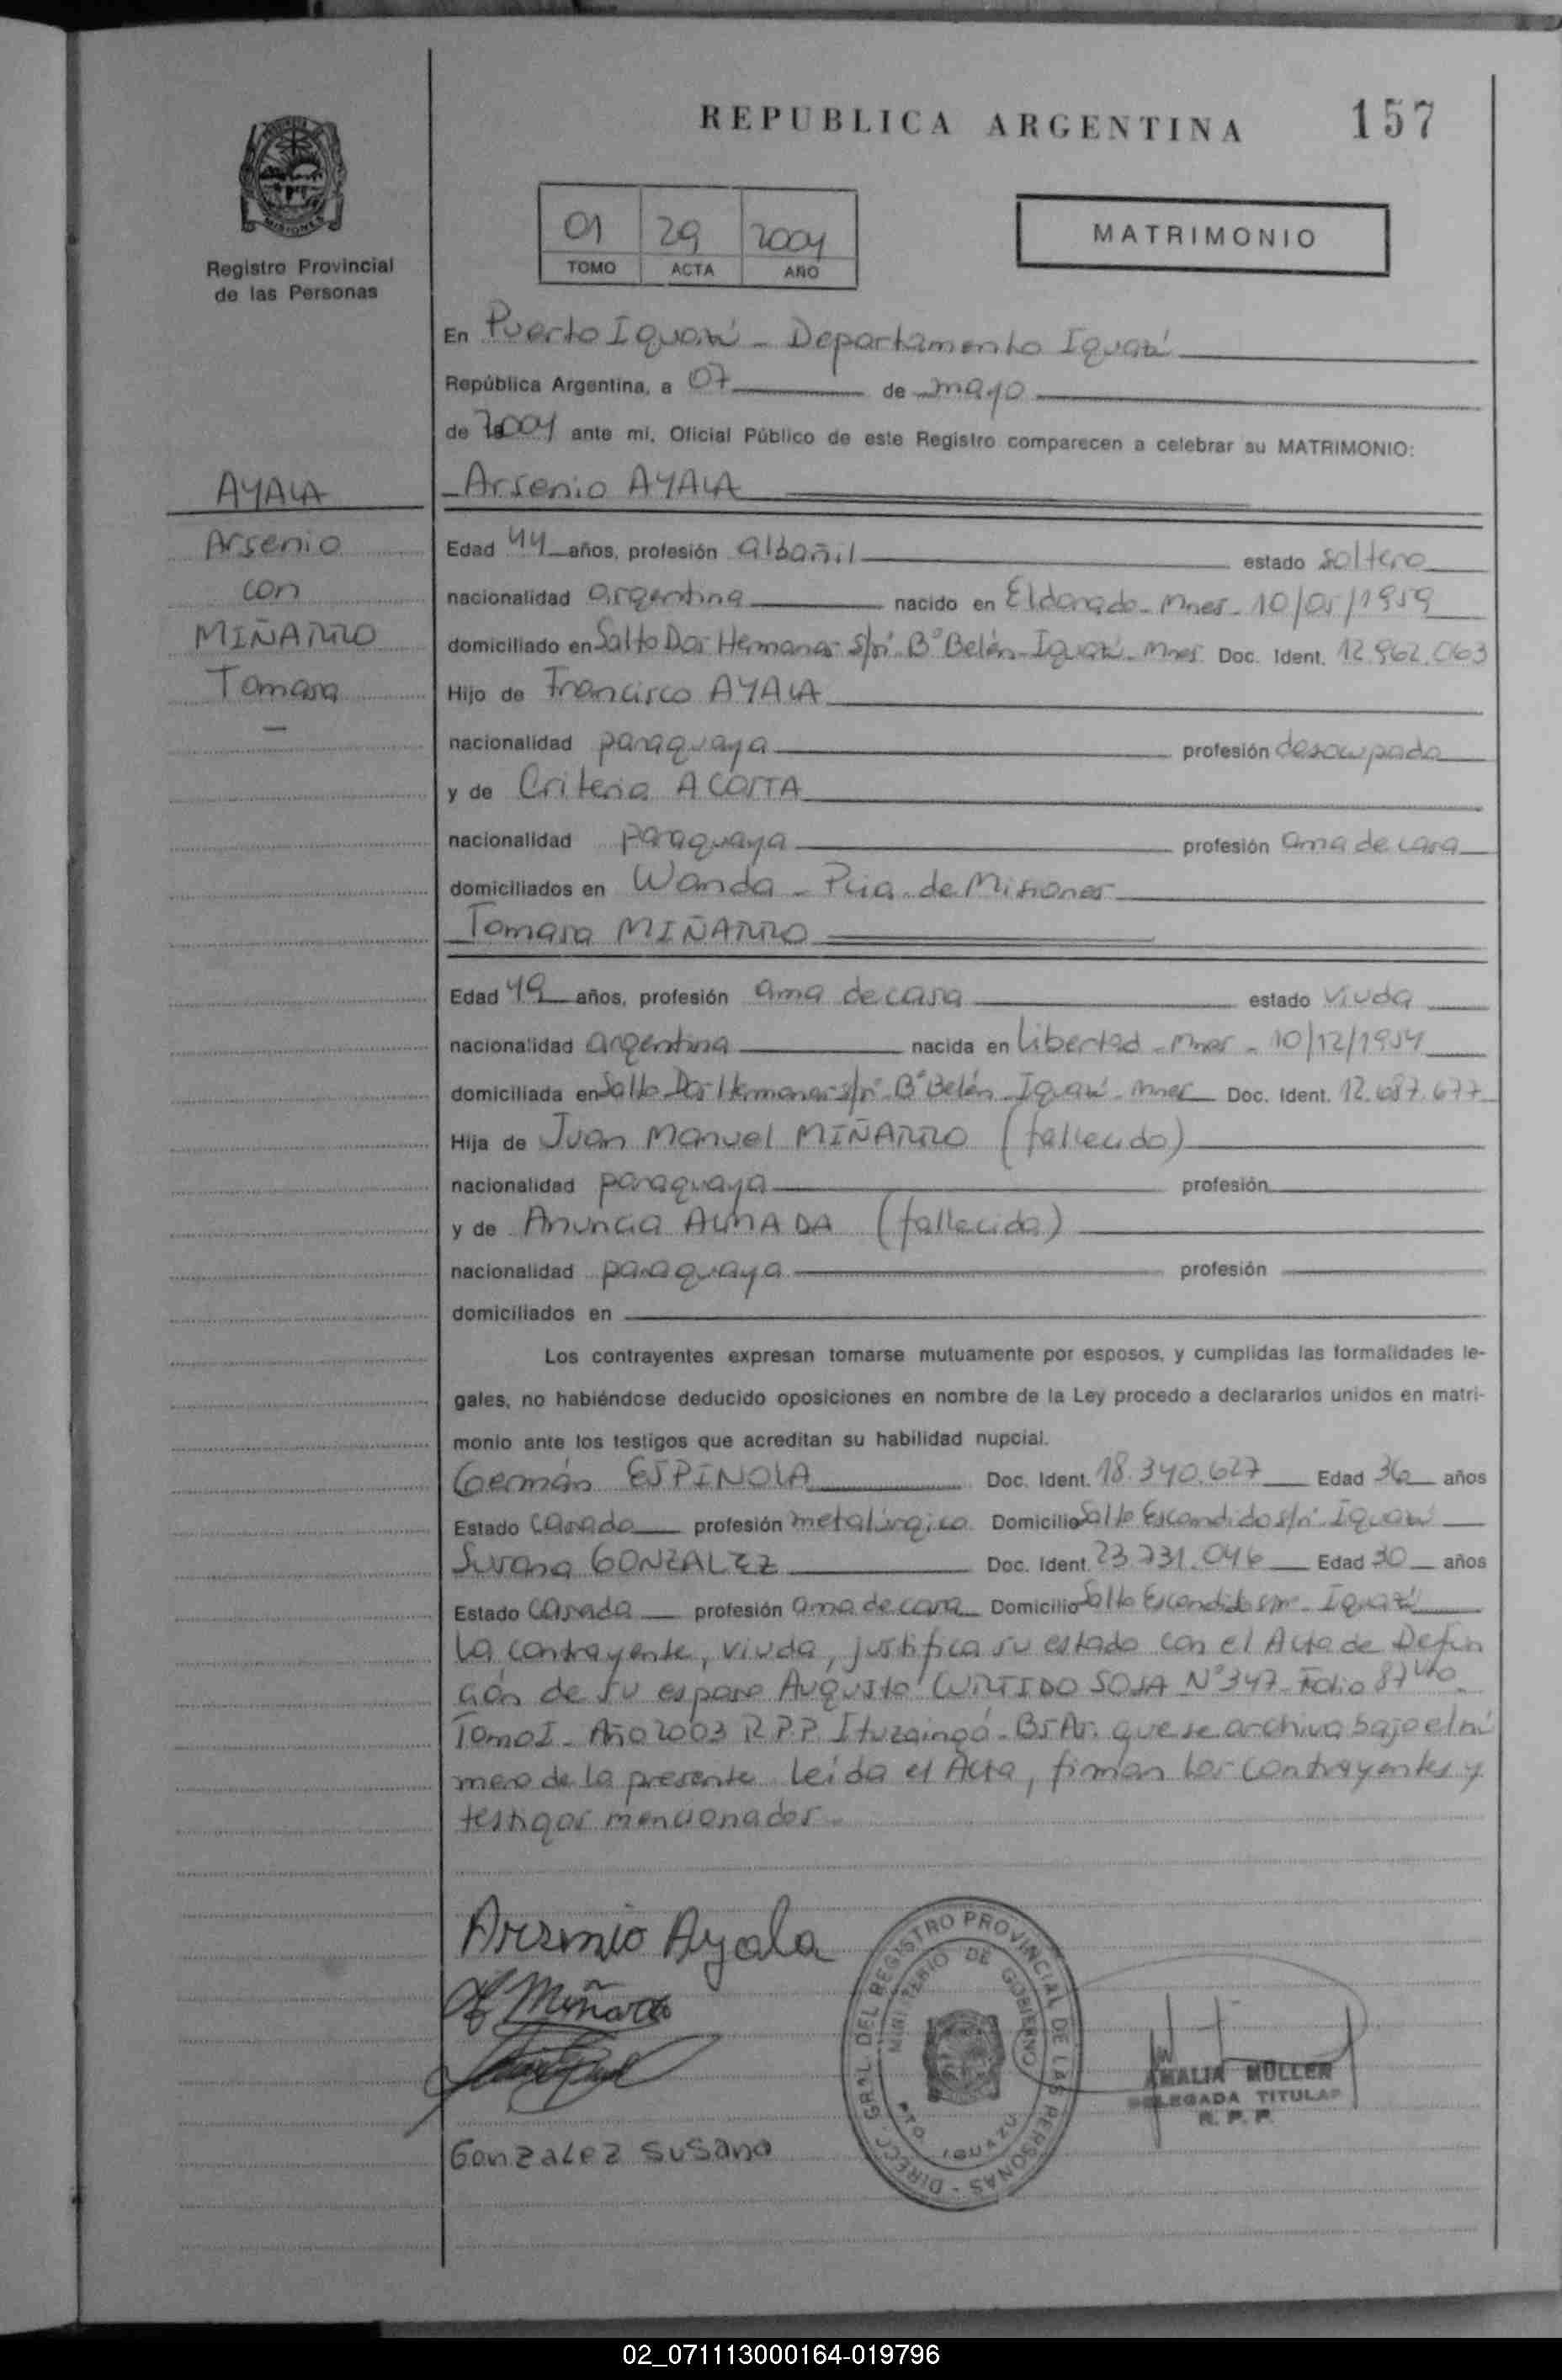 REPUBLICA ARGENTINA
157
MISIONES
Registro Provincial
de las Personas
01 29 2004
TOMO ACTA AÑO
MATRIMONIO
En Puerto Iguazú - Departamento Iguazú
República Argentina, a 07 de mayo
de 2004 ante mí, Oficial Público de este Registro comparecen a celebrar su MATRIMONIO:
AYALA
Arsenio
con
MIÑARRO
Tomasa
Arsenio AYALA
Edad 44 años, profesión albañil estado soltero
nacionalidad argentina nacido en Eldorado - Mnes - 10/05/1959
domiciliado en Salto Dos Hermanas s/nº Bº Belén - Iguazú - Mnes Doc. Ident. 12.962.063
Hijo de Francisco AYALA
nacionalidad paraguaya profesión desocupado
y de Criteria ACOSTA
nacionalidad paraguaya profesión ama de casa
domiciliados en Wanda - Pcia. de Misiones
Tomasa MIÑARRO
Edad 49 años, profesión ama de casa estado viuda
nacionalidad argentina nacida en Libertad - Mnes - 10/12/1954
domiciliada en Salto Dos Hermanas s/nº Bº Belén Iguazú - Mnes Doc. Ident. 12.687.677
Hija de Juan Manuel MIÑARRO (fallecido)
nacionalidad paraguaya profesión
y de Anuncia ALMADA (fallecida)
nacionalidad paraguaya profesión
domiciliados en
Los contrayentes expresan tomarse mutuamente por esposos, y cumplidas las formalidades le-
gales, no habiéndose deducido oposiciones en nombre de la Ley procedo a declararlos unidos en matri-
monio ante los testigos que acreditan su habilidad nupcial.
Germán ESPINOLA Doc. Ident. 18.340.627 Edad 36 años
Estado Casado profesión metalúrgico Domicilio Salto Escondido s/nº Iguazú
Susana GONZALEZ Doc. Ident. 23.731.046 Edad 30 años
Estado Casada profesión ama de casa Domicilio Salto Escondido s/nº Iguazú
La contrayente, viuda, justifica su estado con el Acta de Defun
ción de su esposo Augusto CURTIDO SOSA Nº 347 Folio 87 vto
Tomo I - Año 2003 R.P.P. Ituzaingó - Bs As. que se archiva bajo el nú
mero de la presente Leída el Acta, firman los contrayentes y
testigos mencionados.
Arsenio Ayala
Miñarro
Gonzalez Susana
DIRECC. GRAL. DEL REGISTRO PROVINCIAL DE LAS PERSONAS -
MINISTERIO DE GOBIERNO
PTO IGUAZU
AMALIA MÜLLER
DELEGADA TITULAR
R. P. P.
02_071113000164-019796